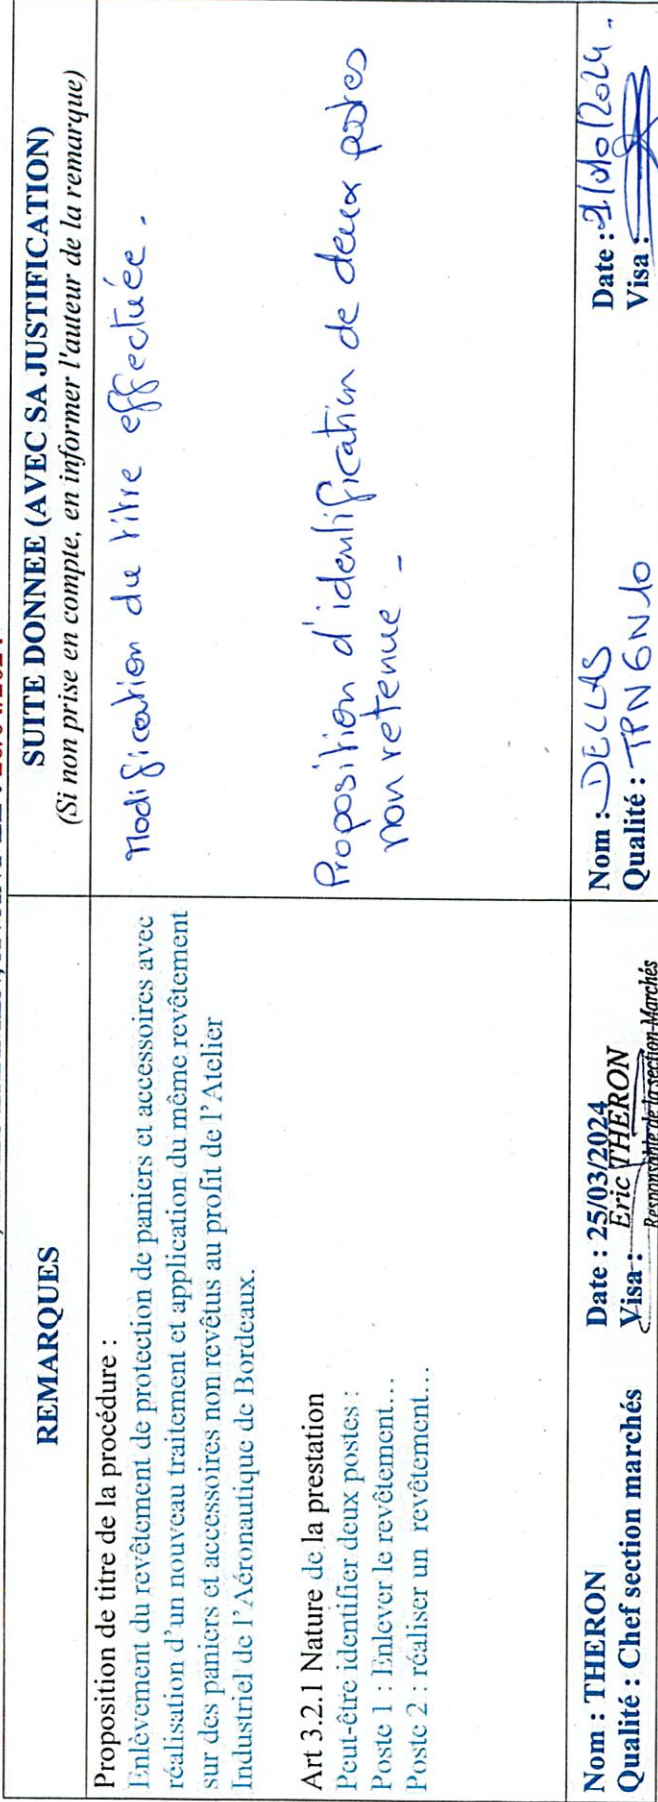 REMARQUES
SUITE DONNEE (AVEC SA JUSTIFICATION)
(Si non prise en compte, en informer l'auteur de la remarque)
Proposition de titre de la procédure :
Enlèvement du revêtement de protection de paniers et accessoires avec
réalisation d'un nouveau traitement et application du même revêtement
sur des paniers et accessoires non revêtus au profit de l'Atelier
Industriel de l'Aéronautique de Bordeaux.
Art 3.2.1 Nature de la prestation
Peut-être identifier deux postes :
Poste 1 : Enlever le revêtement…
Poste 2 : réaliser un revêtement…
Modification du titre effectuée.
Proposition d'identification de deux postes
non retenue -
Nom : THERON
Qualité : Chef section marchés
Date : 25/03/2024
Eric THERON
Visa :
Responsable de la section Marchés
Nom : DELLAS
Qualité :
Date :
Visa :